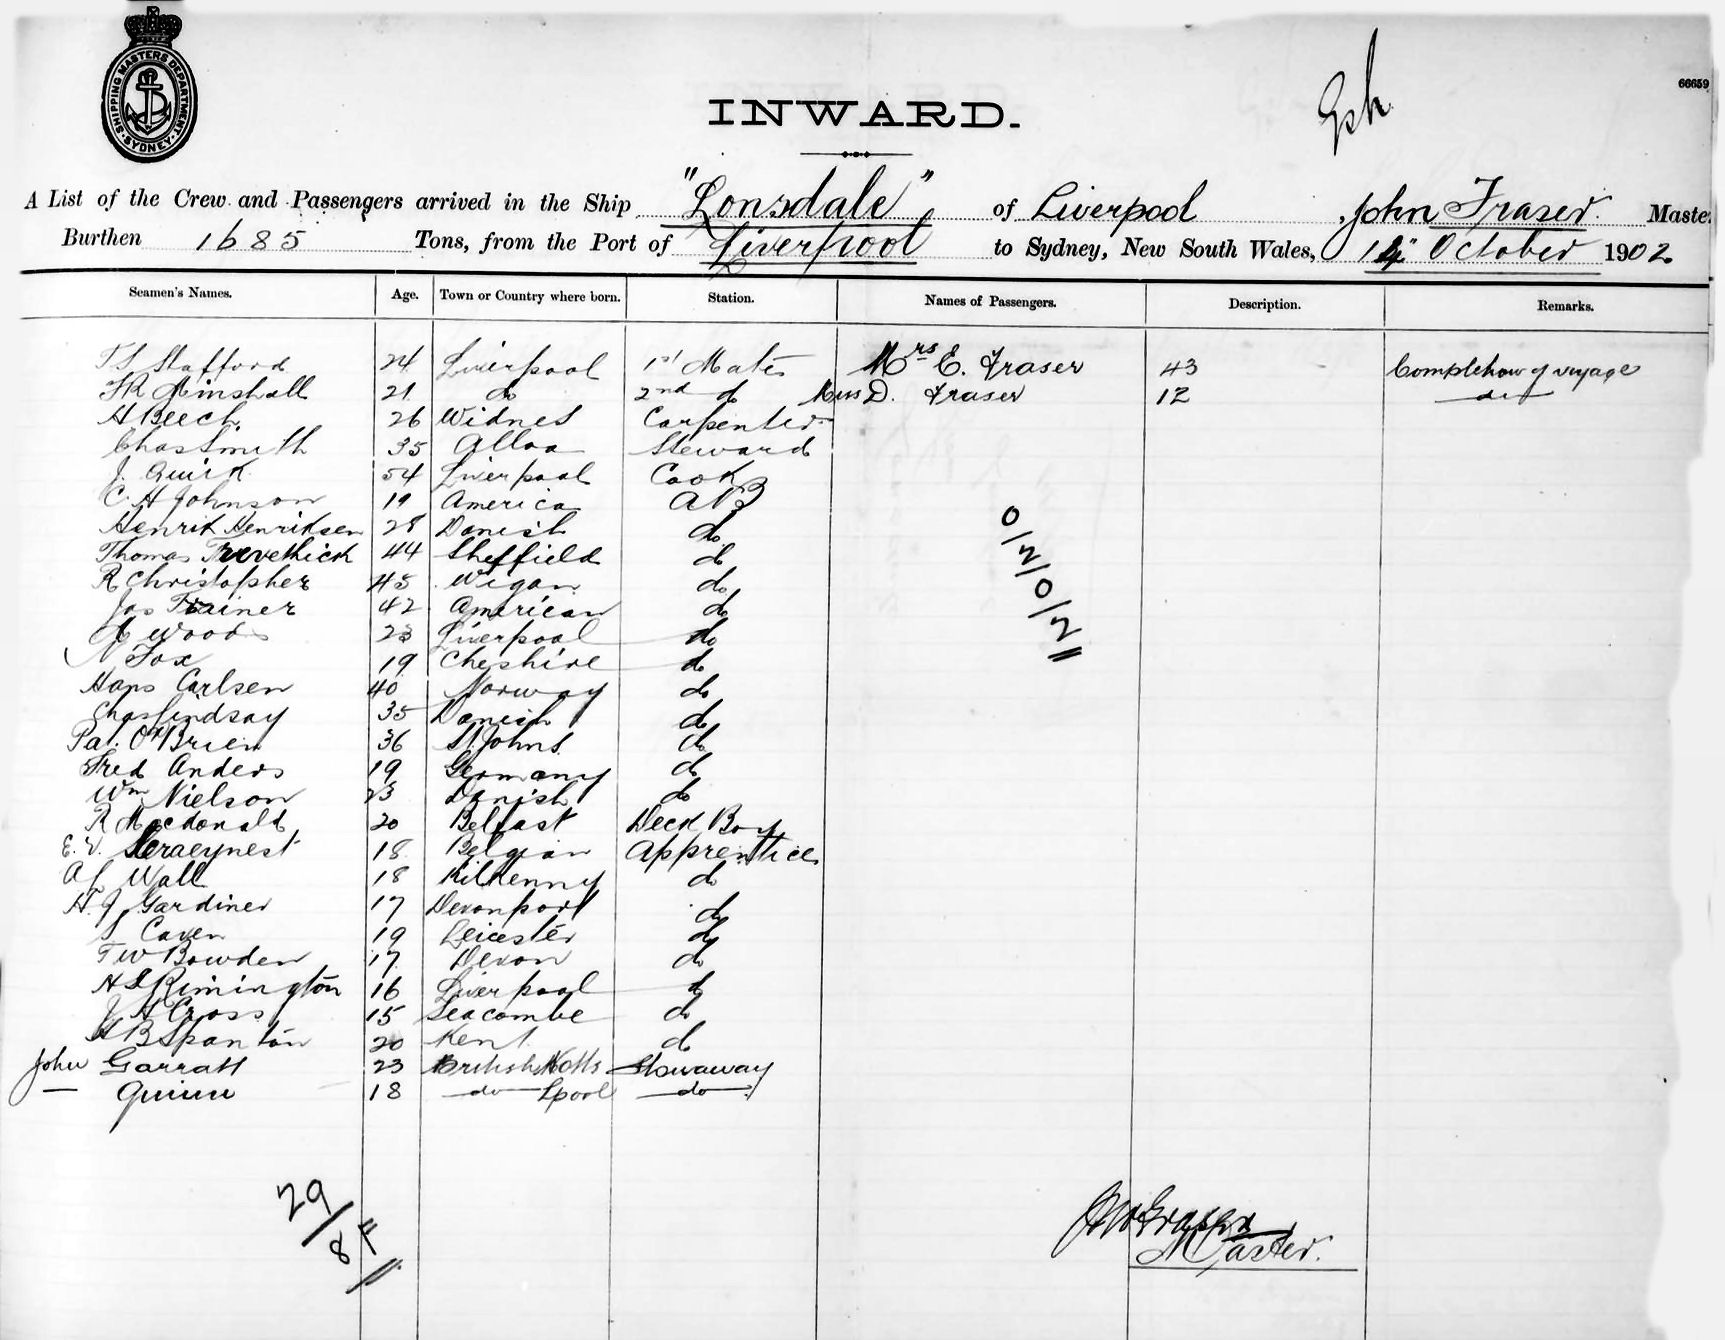 SHIPPING MASTERS DEPARTMENT SYDNEY
66659
INWARD.
A List of the Crew and Passengers arrived in the Ship "Lonsdale" of Liverpool, John Fraser. Master
Burthen 1685 Tons, from the Port of Liverpool to Sydney, New South Wales, 14 October 1902
Seamen's Names. Age. Town or Country where born. Station. Names of Passengers. Description. Remarks.
TS Stafford 24 Liverpool 1st Mate Mrs E. Fraser 43 Completion of voyage
FR Minshall 21 do 2nd do Miss D. Fraser 12 do
H Beech 26 Widnes Carpenter
Chas Smith 35 Alloa Steward
J. Quirk 54 Liverpool Cook
C. A Johnson 19 America AB
Henrik Henriksen 28 Danish do
Thomas Trevethick 44 Sheffield do
R Christopher 45 Wigan do
Jas Trainer 42 American do
A Woods 23 Liverpool do
N Fox 19 Cheshire do
Hans Carlsen 40 Norway do
Chas Lindsay 35 Danish do
Pat. O'Brien 36 St Johns do
Fred Anders 19 Germany do
Wm Nielson 23 Danish do
R Macdonald 20 Belfast Deck Boy
E. V. 18 Belgian Apprentice
A L Wall 18 Kilkenny do
H. J Gardiner 17 Devonport do
S Caven 19 Leicester do
T W Bowden 17 Devon do
H S Rimington 16 Liverpool do
J H Cross 15 Seacombe do
H B Spanton 20 Kent do
John Garratt 23 British Notts Stowaway
— Quinn 18 do Lpool do
0/2/0/2
29/8F
Jno Fraser
Master.